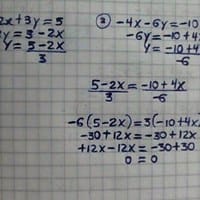 2x+3y=5
3y=5-2x
y=5-2x
3
② -4x-6y=-10
-6y=-10+4
y=-10+4
-6
5-2x = -10+4x
3 -6
-6(5-2x)=3(-10+4x
-30+12x=-30+12x
+12x-12x=-30+30
0=0